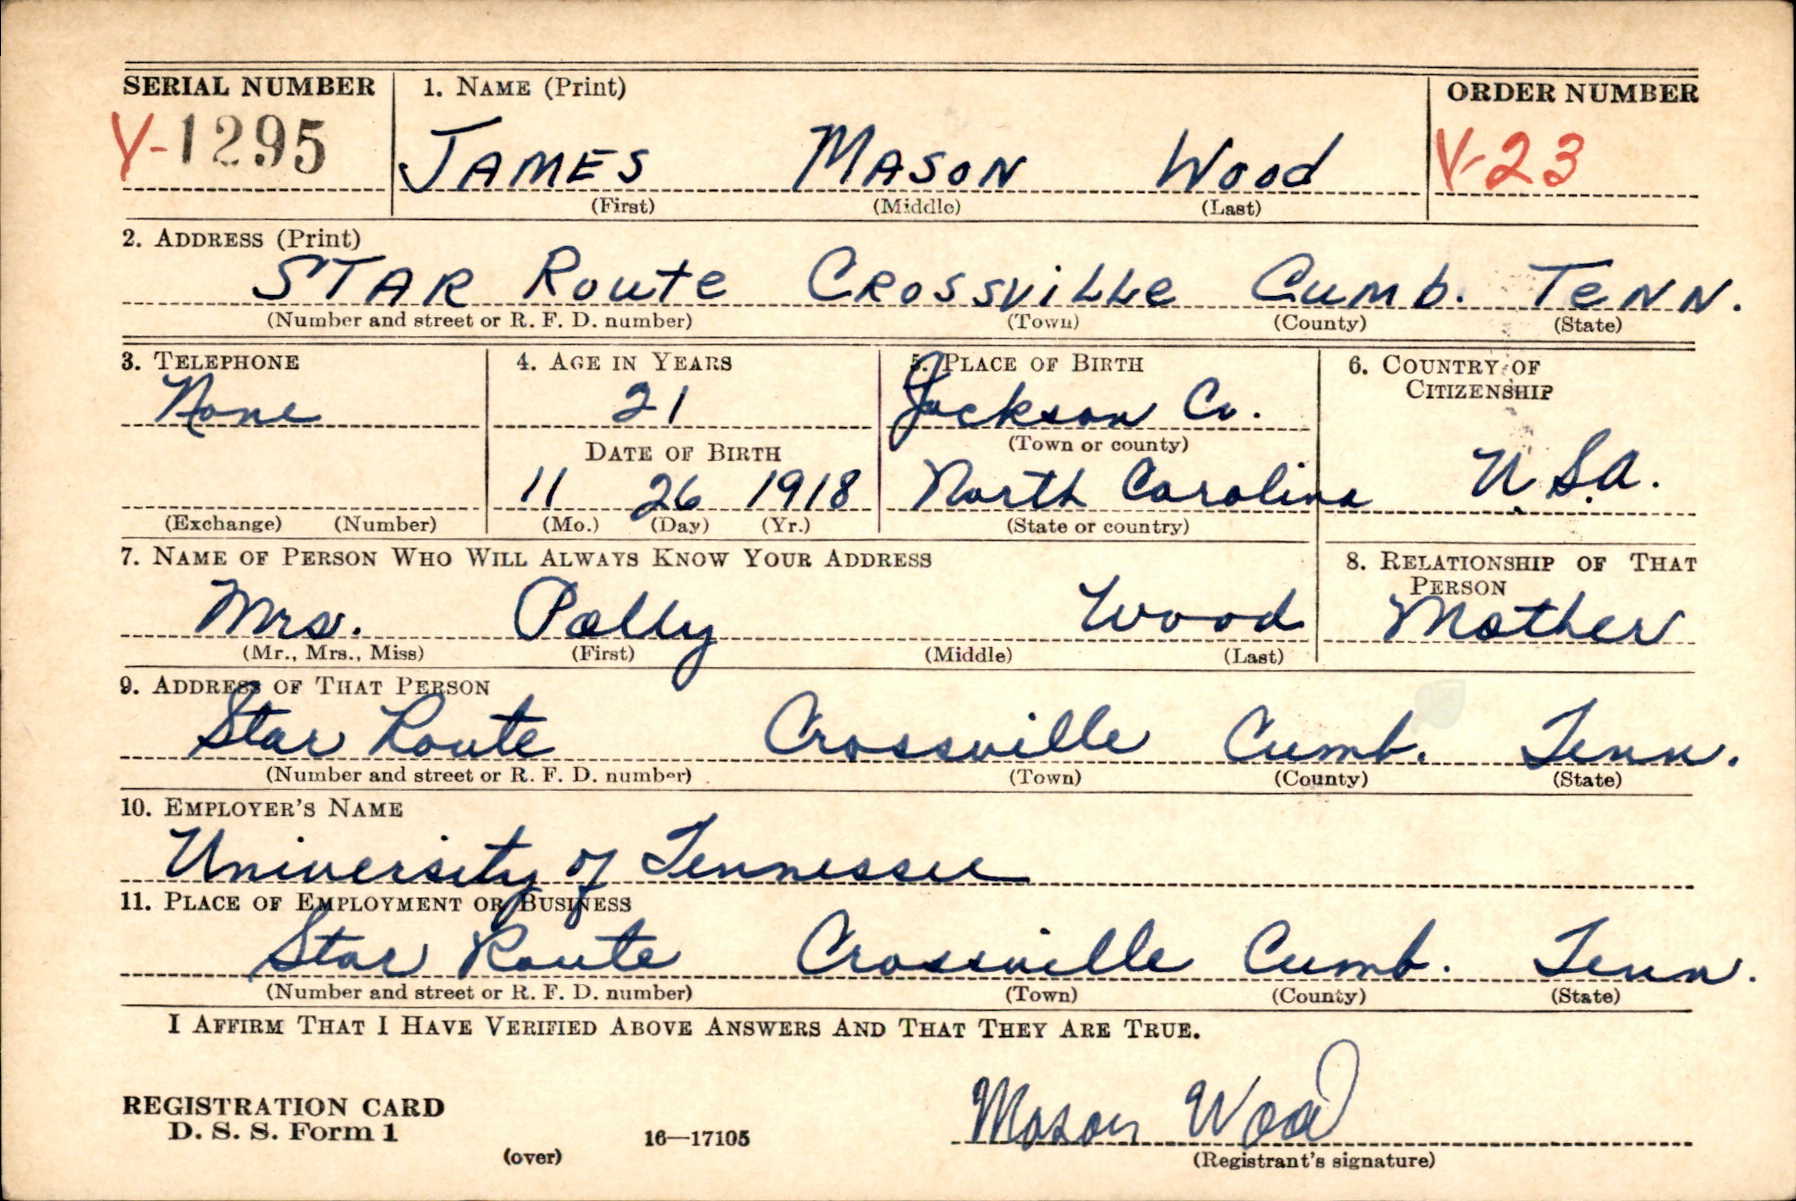 SERIAL NUMBER 1. NAME (Print) ORDER NUMBER
V-1295 JAMES MASON Wood V-23
(First) (Middle) (Last)
2. ADDRESS (Print)
STAR Route CROSSVILLE Cumb. TENN.
(Number and street or R. F. D. number) (Town) (County) (State)
3. TELEPHONE 4. AGE IN YEARS 5. PLACE OF BIRTH 6. COUNTRY OF
CITIZENSHIP
None 21 Jackson Co.
(Town or county)
DATE OF BIRTH
11 26 1918 North Carolina U.S.A.
(Exchange) (Number) (Mo.) (Day) (Yr.) (State or country)
7. NAME OF PERSON WHO WILL ALWAYS KNOW YOUR ADDRESS 8. RELATIONSHIP OF THAT
PERSON
Mrs. Polly Wood Mother
(Mr., Mrs., Miss) (First) (Middle) (Last)
9. ADDRESS OF THAT PERSON
Star Route Crossville Cumb. Tenn.
(Number and street or R. F. D. number) (Town) (County) (State)
10. EMPLOYER'S NAME
University of Tennessee
11. PLACE OF EMPLOYMENT OR BUSINESS
Star Route Crossville Cumb. Tenn.
(Number and street or R. F. D. number) (Town) (County) (State)
I AFFIRM THAT I HAVE VERIFIED ABOVE ANSWERS AND THAT THEY ARE TRUE.
REGISTRATION CARD
D. S. S. Form 1
(over) 16—17105 Mason Wood
(Registrant's signature)